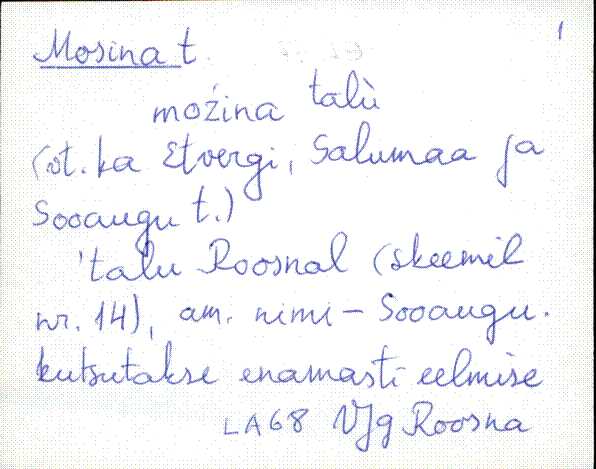 1
Mosina t.
moźina talù
(vt. ka Etvergi, Salumaa ja
Sooaugu t.)
'talu Roosnal (skeemil
nr. 14), am. nimi – Sooaugu.
kutsutakse enamasti eelmise
LA68 VJg Roosna